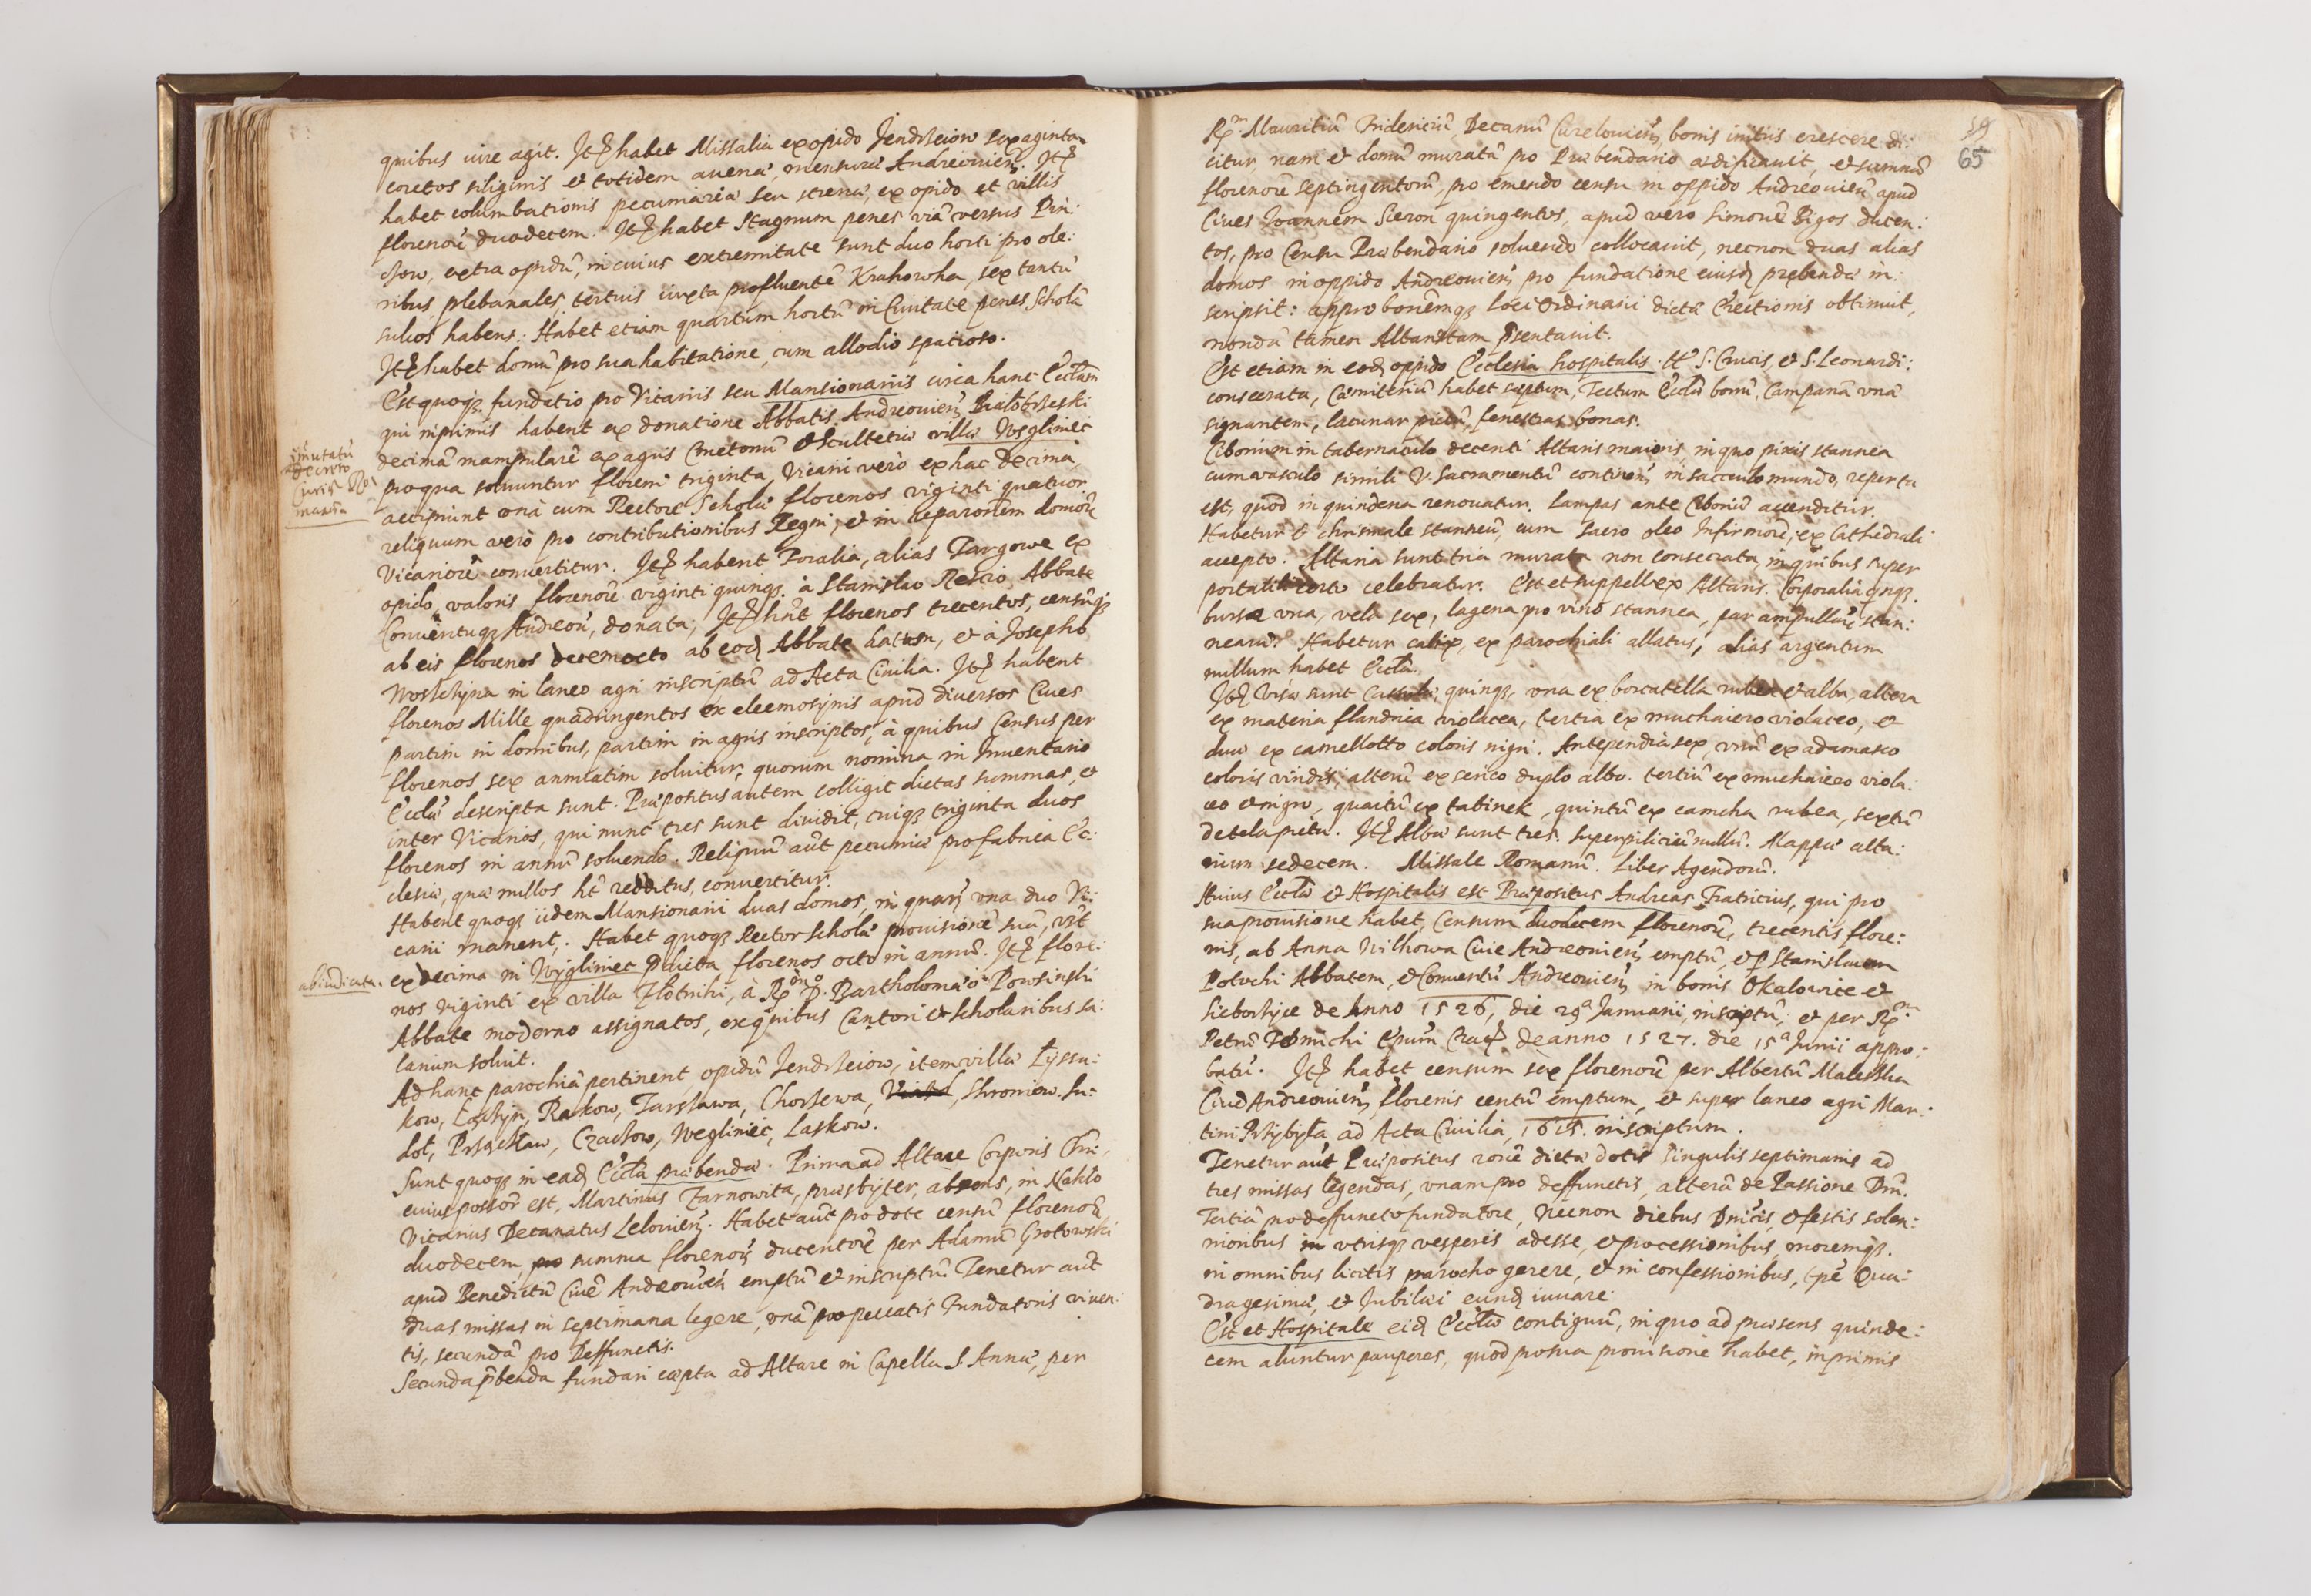 quibus iure agit. Itē habet Missalia ex opido Jendrzeiow sexaginta
coretos siliginis et totidem auenæ, mensuræ Andreouieñ. Itē
habet columbationis pecuniariæ seu strenæ, ex opido et villis
florenoꝝ duodecem. Itē habet Stagnum penes viã versus Pin:
czow, extra opidũ, in cuius extremitate sunt duo horti pro ole:
ribus plebanales, tertius iuxta profluentẽ Krakowka, sex tantũ
sulcos habens. Habet etiam quartum hortũ in Ciuitate penes Scholã
Itē habet domũ pro sua habitatione, cum allodio spatioso.
Est quoqꝫ fundatio pro Vicariis seu Mansionariis circa hanc Eccłam
qui inprimis habent ex donatione Abbatis Andreouieñ Białobrzeski
decimã manipularẽ ex agris Cmetonũ et Scultetiæ villæ Węgliniec
pro qua soluuntur floreni triginta, Vicarii verò ex hac Decima,
accipiunt unà cum Rectore Scholæ florenos viginti quatuor
reliquum verò pro contributionibus Regni, et in reparonem domoꝝ
Vicarioꝝ conuertitur. Itē habent Foralia, alias Targowe ex
opido, valoris florenoꝝ viginti quinqꝫ. à Stanislao Rescio Abbate
Conuentuqꝫ Andreoũ, donata; Itē hñt florenos trecentos, censũqꝫ
ab eis florenos decemocto ab eod Abbate datum, et à Josepho
Woszczyna in laneo agri inscriptũ ad Acta Ciuilia. Itē habent
florenos Mille quadringentos ex eleemosijnis apud diuersos Ciues
partim in domibus, partim in agris inscriptos, à quibus Census per
florenos sex annuatim soluitur, quorum nomina in Inuentario
Eccłæ descripta sunt. Præpositus autem colligit dictas summas, et
inter Vicarios, qui nunc tres sunt diuidit, cuiqꝫ triginta duos
florenos in annũ soluendo. Reliquũ aũt pecuniæ pro fabrica Ec:
clesiæ, quæ nullos ht redditus, conuertitur.
Habent quoqꝫ iidem Mansionarii duas domos, in quarũ vna duo Vi:
carii manent. Habet quoqꝫ Rector Scholæ prouisionẽ suã, vt
ex decima in Węgliniec pdicta florenos octo in annũ. Itē flore:
nos viginti ex villa Złotniki, à Rdo D. Bartholomæo Powsinski
Abbate moderno assignatos, ex quibus Cantori et scholaribus sa:
larium soluit.
Ad hanc parochiã pertinent opidũ Jendrzeiow, item villæ Łyssa:
kow, Łączyn, Rakow, Tarszawa, Chorzewa, Skroniow. Su:
doł, Prząsław, Czachow, Węgliniec, Laskow.
Sunt quoqꝫ in ead Eccła præbendæ. Prima ad Altare Corporis Chri,
cuius possor est, Martinus Zarnowita, præsbijter, absens, in Nakło
Vicarius Decanatus Lelouieñ. Habet aũt pro dote censũ florenoꝝ
duodecem pro summa florenoꝝ ducentoꝝ per Adamũ Grotowski
apud Benedictũ Ciuẽ Andreouieñ emptũ et inscriptũ. Tenetur aũt
duas missas in septimana legere, vnã pro peccatis Fundatoris viuen:
tis, secundã pro Deffunctis.
Secunda pbenda fundari cæpta ad Altare in Capella S. Annæ, per
imutatũ
decreto
Curiæ Ro
manæ
abiudicata.
59
65
Rm. Mauritiũ Fridericiũ Decanũ Curelouieñ, bonis initiis crescere di:
citur, nam et domũ muratã pro Præbendario ædificauit, et summã
florenoꝝ septingentorũ, pro emendo censu in oppido Andreouieñ apud
Ciues Joannem Sieron quingentos, apud vero Simonẽ Bigos ducen:
tos, pro Censu Præbendario soluendo collocauit, necnon duas alias
domos in oppido Andreouieñ pro fundatione eiusd prębendæ in:
scripsit: approbonẽmqꝫ loci Ordinarii dictæ Erectionis obtinuit,
nondũ tamen Altaristam psentauit.
Est etiam in eod oppido Ecclesia hospitalis. tt S. Crucis, et S. Leonardi:
consecrata, Cæmiteriũ habet septum, Tectum Eccłæ bonũ, Campanã vnã
signantem, lacunar pictũ, fenestras bonas.
Ciborium in tabernaculo decenti Altaris maioris in quo pixis stannea
cum vasculo simili V. Sacramentũ continens in sacculo mundo, reperta
est, quod in quindena renouatur. Lampas ante Ciboriũ accenditur.
Habetur et chrismale stanneũ, cum sacro oleo Infirmoꝝ, ex Cathedrali
accepto. Altaria sunt tria murata non consecrata, in quibus super
portatili certo celebratur. Est et suppellex Altaris. Corporalia qnqꝫ.
bursa vna, vela sex, lagena pro vino stannea, par ampullaꝝ stan:
nearũ. Habetur calix, ex parochiali allatus, alias argentum
nullum habet Eccła.
Itē Visæ sunt Casulæ quinqꝫ, vna ex borcatella rubea et alba, altera
ex materia flandrica violacea, tertia ex muchaiero violaceo, et
duæ ex camellotto coloris nigri. Antependia sex, vnũ ex adamasco
coloris viridis, alterũ ex serico duplo albo. tertiũ ex muchaiero viola:
ceo et nigro, quartũ ex tabinek, quintũ ex camcha rubea, sextũ
de tela picta. Itē Albæ sunt tres. Superpiliciũ nullũ. Mappæ alta:
rium sedecem. Missale Romanũ. Liber Agendorũ.
Huius Eccłæ et Hospitalis est Præpositus Andreas Fatricius, qui pro
sua prouisione habet, Censum duodecem florenoꝝ, trecentis flore:
nis, ab Anna Wilkowa Ciue Andreouieñ emptũ, et p Stanislaum
Polocki Abbatem, et Conuentũ Andreouieñ in bonis Okalowice et
Sieborzyce de Anno 1526, die 29a Januarii, inscriptũ, et per Rm.
Petrũ Tomicki Epum Crac de anno 1527. die 15a Junii appro:
batũ. Itē habet censum sex florenoꝝ per Albertũ Malesska
Ciuẽ Andreouieñ florenis centũ emptum, et super laneo agri Mar:
tini Przybyła ad Acta Ciuilia, 1615. inscriptum.
Tenetur aũt Præpositus ronẽ dictæ dotis singulis septimanis ad
tres missas legendas, vnam pro deffunctis, alterã de Passione Dñi.
Tertiã pro deffuncto fundatore, necnon diebus Dnicis, et festis solen:
nioribus in vtrisqꝫ vesperis adesse, et processionibus, moremqꝫ.
in omnibus licitis parocho gerere, et in confessionibus, tpẽ Qua:
dragesimæ, et Jubilæi eund iuuare.
Est et Hospitale eid Eccłæ contiguũ, in quo ad præsens quinde:
cem aluntur pauperes, quod pro sua prouisione habet, inprimis